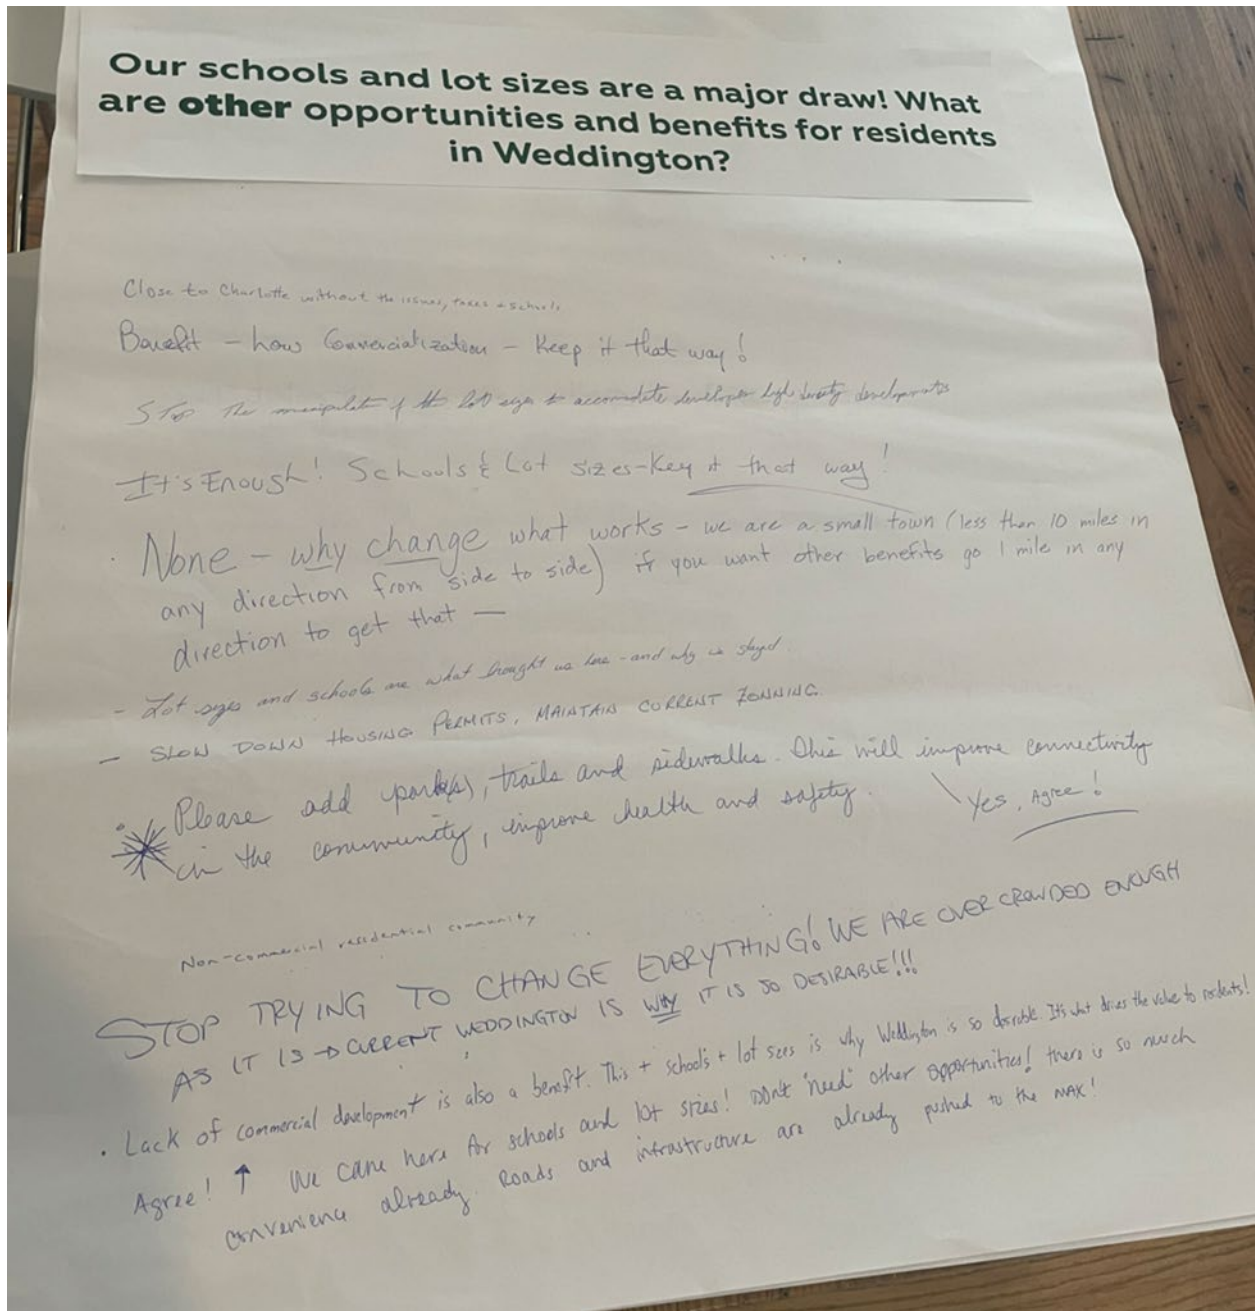 Our schools and lot sizes are a major draw! What
are other opportunities and benefits for residents
in Weddington?
Close to Charlotte without the issues, taxes + schools
Benefit – how Commercialization – Keep it that way!
STOP the manipulation of the lot sizes to accomodate developer high density developments
It's Enough! Schools & Lot sizes-Key it that way!
None – why change what works – we are a small town (less than 10 miles in
any direction from side to side) if you want other benefits go 1 mile in any
direction to get that —
- Lot sizes and schools are what brought us here - and why we stayed.
- SLOW DOWN HOUSING PERMITS, MAINTAIN CURRENT ZONNING.
Please add park(s), trails and sidewalks. This will improve connectivity
in the community, improve health and safety. \ Yes, Agree!
Non-commercial residential community
STOP TRYING TO CHANGE EVERYTHING! WE ARE OVER CROWDED ENOUGH
AS IT IS → CURRENT WEDDINGTON IS WHY IT IS SO DESIRABLE!!!
• Lack of commercial development is also a benefit. This + schools + lot sizes is why Weddington is so desirable. It's what drives the value to residents!
Agree! ↑ We came here for schools and lot sizes! Don't "need" other opportunities! there is so much
convenience already. Roads and infrastructure are already pushed to the MAX!